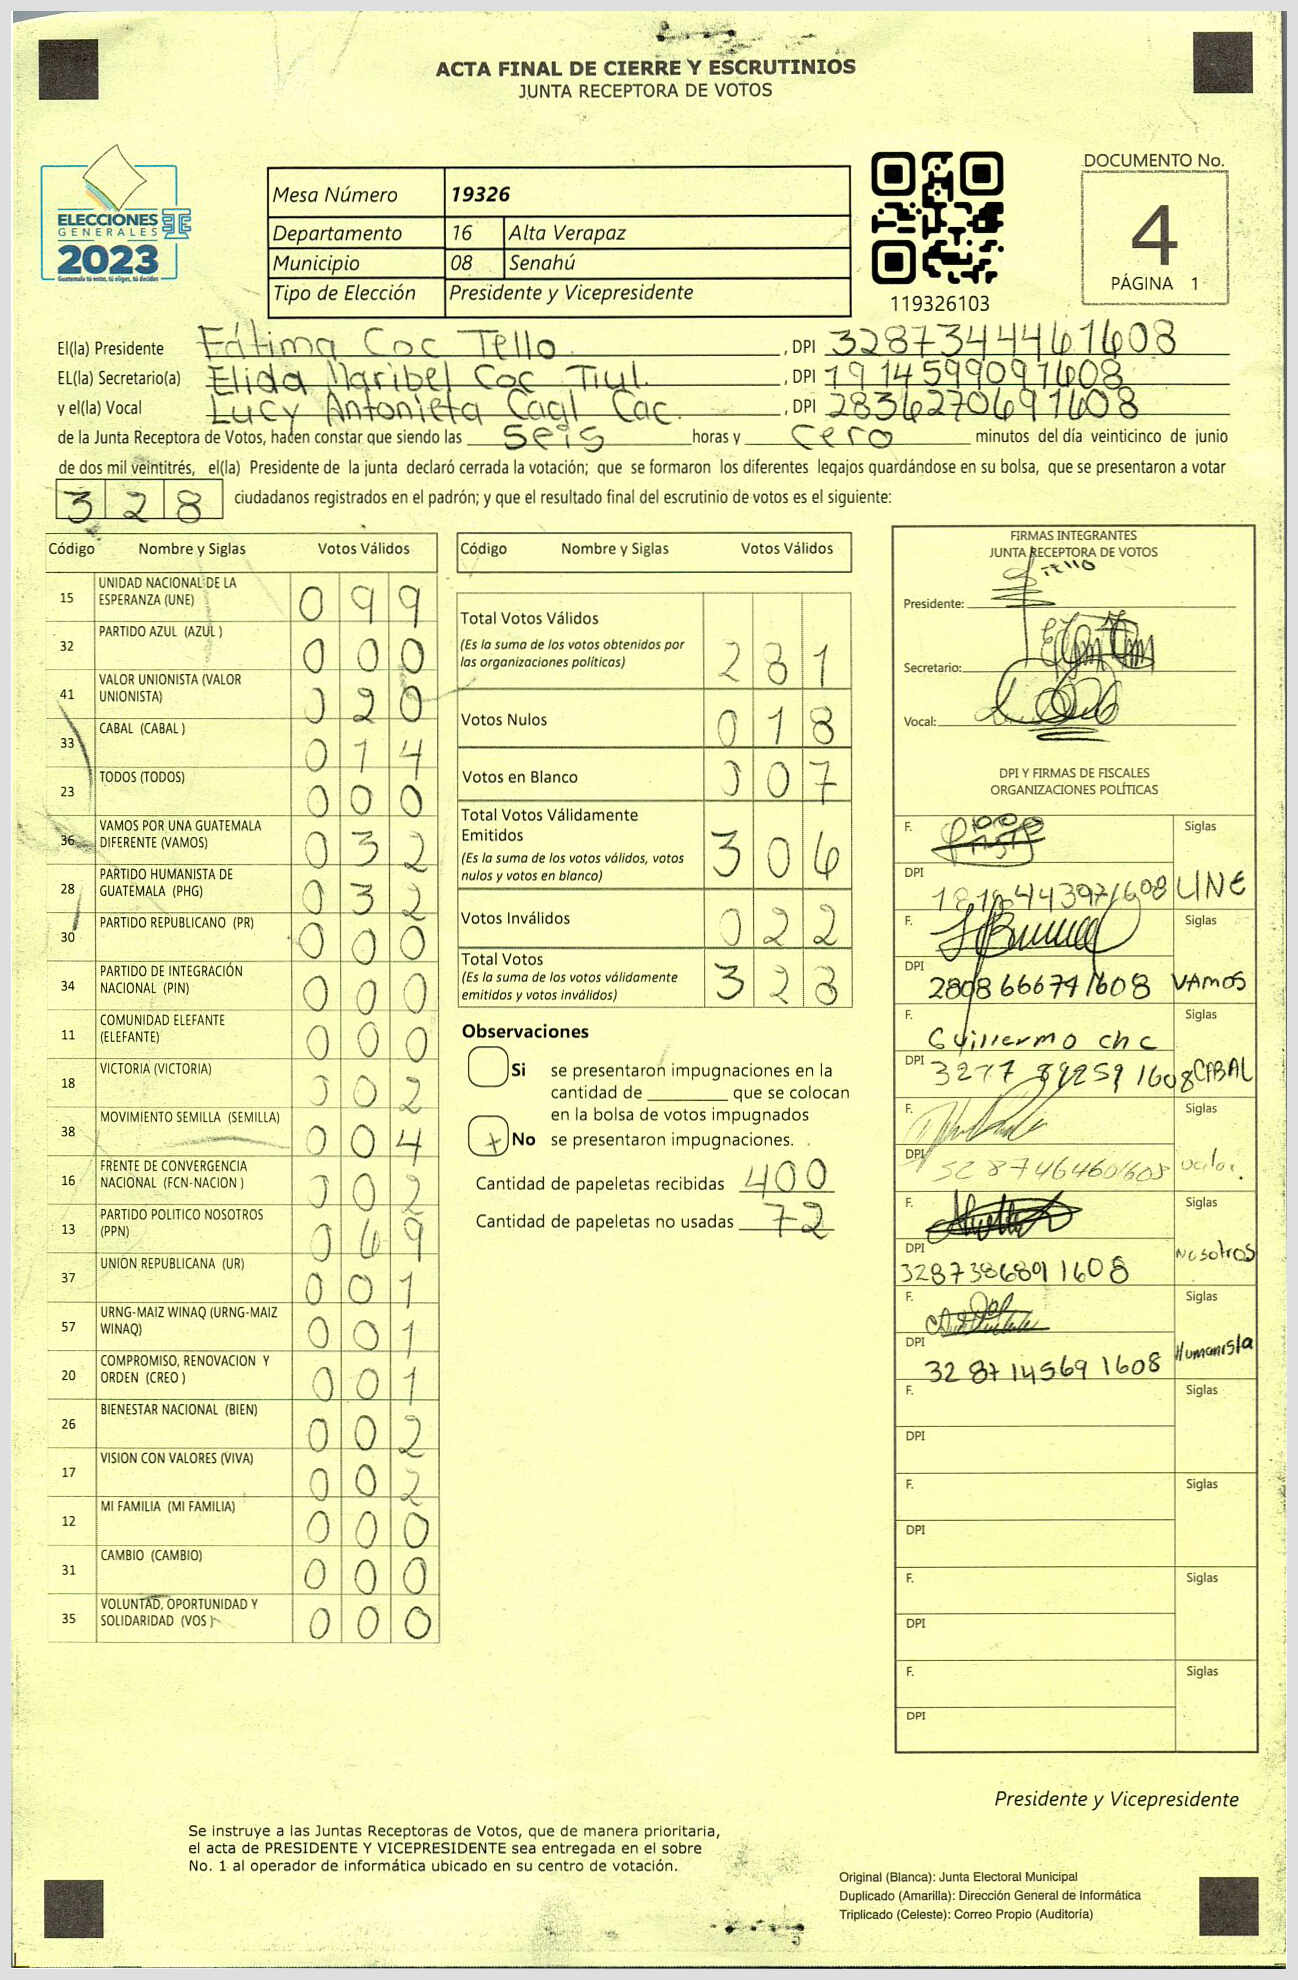 ACTA FINAL DE CIERRE Y ESCRUTINIOS
JUNTA RECEPTORA DE VOTOS
ELECCIONES
GENERALES
2023
Guatemala tú votas, tú eliges, tú decides
Mesa Número 19326
Departamento 16 Alta Verapaz
Municipio 08 Senahú
Tipo de Elección Presidente y Vicepresidente
119326103
DOCUMENTO No.
4
PÁGINA 1
El(la) Presidente Fátima Coc Tello , DPI 3287344461608
EL(la) Secretario(a) Elida Maribel Coc Tiul. , DPI 1914599091608
y el(la) Vocal Lucy Antonieta Caal Cac. , DPI 2836270691608
de la Junta Receptora de Votos, hacen constar que siendo las seis horas y cero minutos del día veinticinco de junio
de dos mil veintitrés, el(la) Presidente de la junta declaró cerrada la votación; que se formaron los diferentes legajos guardándose en su bolsa, que se presentaron a votar
328 ciudadanos registrados en el padrón; y que el resultado final del escrutinio de votos es el siguiente:
Código Nombre y Siglas Votos Válidos
15 UNIDAD NACIONAL DE LA ESPERANZA (UNE) 099
32 PARTIDO AZUL (AZUL ) 000
41 VALOR UNIONISTA (VALOR UNIONISTA) 020
33 CABAL (CABAL ) 014
23 TODOS (TODOS) 000
36 VAMOS POR UNA GUATEMALA DIFERENTE (VAMOS) 032
28 PARTIDO HUMANISTA DE GUATEMALA (PHG) 032
30 PARTIDO REPUBLICANO (PR) 000
34 PARTIDO DE INTEGRACIÓN NACIONAL (PIN) 000
11 COMUNIDAD ELEFANTE (ELEFANTE) 000
18 VICTORIA (VICTORIA) 002
38 MOVIMIENTO SEMILLA (SEMILLA) 004
16 FRENTE DE CONVERGENCIA NACIONAL (FCN-NACION ) 002
13 PARTIDO POLITICO NOSOTROS (PPN) 069
37 UNION REPUBLICANA (UR) 001
57 URNG-MAIZ WINAQ (URNG-MAIZ WINAQ) 001
20 COMPROMISO, RENOVACION Y ORDEN (CREO ) 001
26 BIENESTAR NACIONAL (BIEN) 002
17 VISION CON VALORES (VIVA) 002
12 MI FAMILIA (MI FAMILIA) 000
31 CAMBIO (CAMBIO) 000
35 VOLUNTAD, OPORTUNIDAD Y SOLIDARIDAD (VOS ) 000
Código Nombre y Siglas Votos Válidos
Total Votos Válidos 281
(Es la suma de los votos obtenidos por
las organizaciones políticas)
Votos Nulos 018
Votos en Blanco 007
Total Votos Válidamente
Emitidos 306
(Es la suma de los votos válidos, votos
nulos y votos en blanco)
Votos Inválidos 022
Total Votos 328
(Es la suma de los votos válidamente
emitidos y votos inválidos)
Observaciones
Si se presentaron impugnaciones en la
cantidad de ________ que se colocan
en la bolsa de votos impugnados
+ No se presentaron impugnaciones.
Cantidad de papeletas recibidas 400
Cantidad de papeletas no usadas 72
FIRMAS INTEGRANTES
JUNTA RECEPTORA DE VOTOS
Presidente: Tello
Secretario:
Vocal:
DPI Y FIRMAS DE FISCALES
ORGANIZACIONES POLÍTICAS
F. Siglas
DPI UNE
F. Siglas
DPI 2808666741608 VAMOS
F. Guillermo chc Siglas
DPI 3277 89259 1608 CABAL
F. Siglas
DPI 3287464601608 valor.
F. Siglas
DPI 3287386891608 Nosotros
F. Siglas
DPI 3287145691608 Humanista
F. Siglas
DPI
F. Siglas
DPI
F. Siglas
DPI
F. Siglas
DPI
Presidente y Vicepresidente
Se instruye a las Juntas Receptoras de Votos, que de manera prioritaria,
el acta de PRESIDENTE Y VICEPRESIDENTE sea entregada en el sobre
No. 1 al operador de informática ubicado en su centro de votación.
Original (Blanca): Junta Electoral Municipal
Duplicado (Amarilla): Dirección General de Informática
Triplicado (Celeste): Correo Propio (Auditoría)